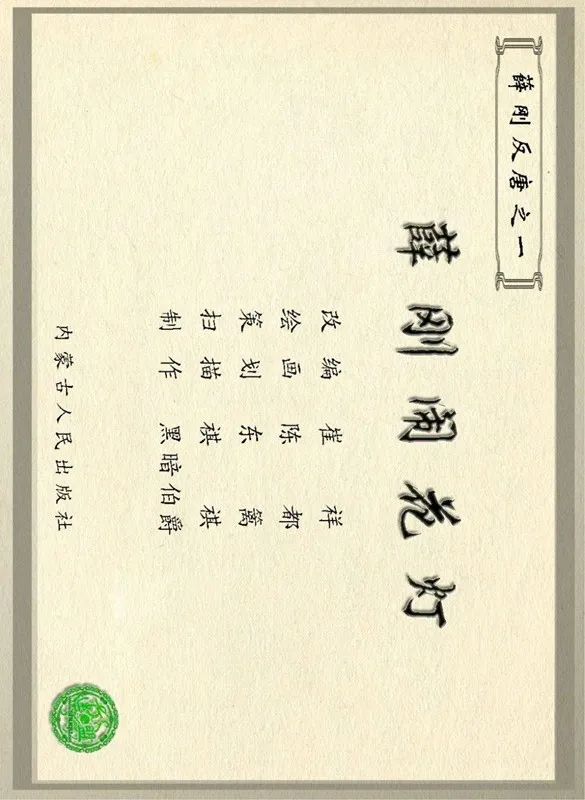 薛刚反唐之一
薛刚闹花灯
改编 崔祥
绘画 陈都
策划 东篱
扫描 祺祺
制作 黑暗伯爵
内蒙古人民出版社